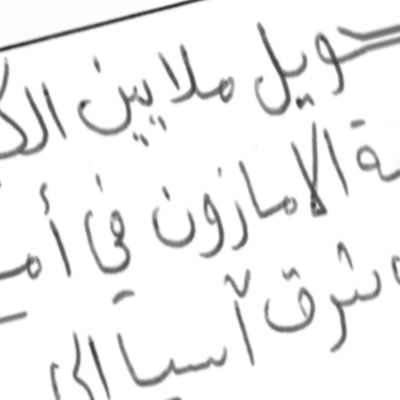 حويل ملايين الك
ة الامازون في أم
شرق آسيا الى